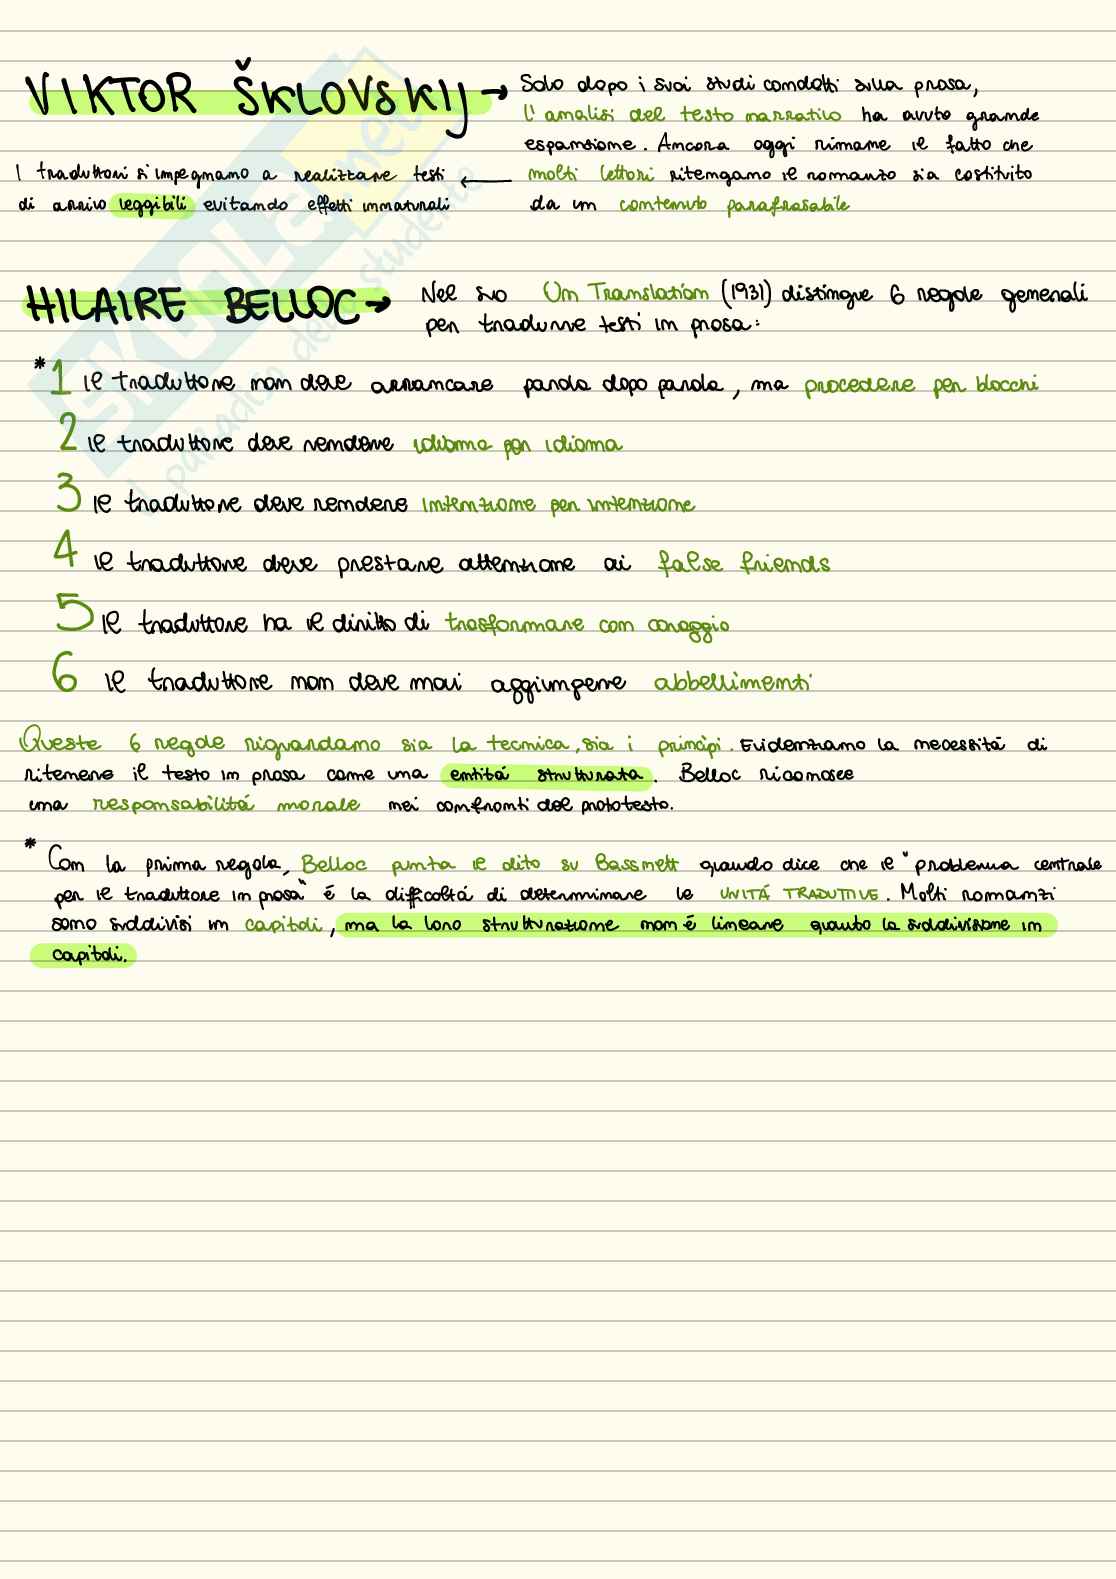 VIKTOR ŠKLOVSKIJ → Solo dopo i suoi studi condotti sulla prosa,
l'analisi del testo narrativo ha avuto grande
espansione. Ancora oggi rimane il fatto che
molti lettori ritengano il romanzo sia costituito
da un contenuto parafrasabile
I traduttori si impegnano a realizzare testi ←
di arrivo leggibili evitando effetti innaturali
HILAIRE BELLOC → Nel suo On Translation (1931) distingue 6 regole generali
per tradurre testi in prosa:
* 1 Il traduttore non deve arrancare parola dopo parola, ma procedere per blocchi
2 Il traduttore deve rendere idioma per idioma
3 Il traduttore deve rendere intenzione per intenzione
4 Il traduttore deve prestare attenzione ai false friends
5 Il traduttore ha il diritto di trasformare con coraggio
6 Il traduttore non deve mai aggiungere abbellimenti
Queste 6 regole riguardano sia la tecnica, sia i princìpi. Evidenziamo la necessitá di
ritenere il testo in prosa come una entitá strutturata. Belloc riconosce
una responsabilitá morale nei confronti del prototesto.
* Con la prima regola, Belloc punta il dito su Bassnett quando dice che il "problema centrale
per il traduttore in prosa" é la difficoltá di determinare le UNITÁ TRADUTIVE. Molti romanzi
sono suddivisi in capitoli, ma la loro strutturazione non é lineare quanto la suddivisione in
capitoli.
SKUOLA.net
il paradiso dello studente